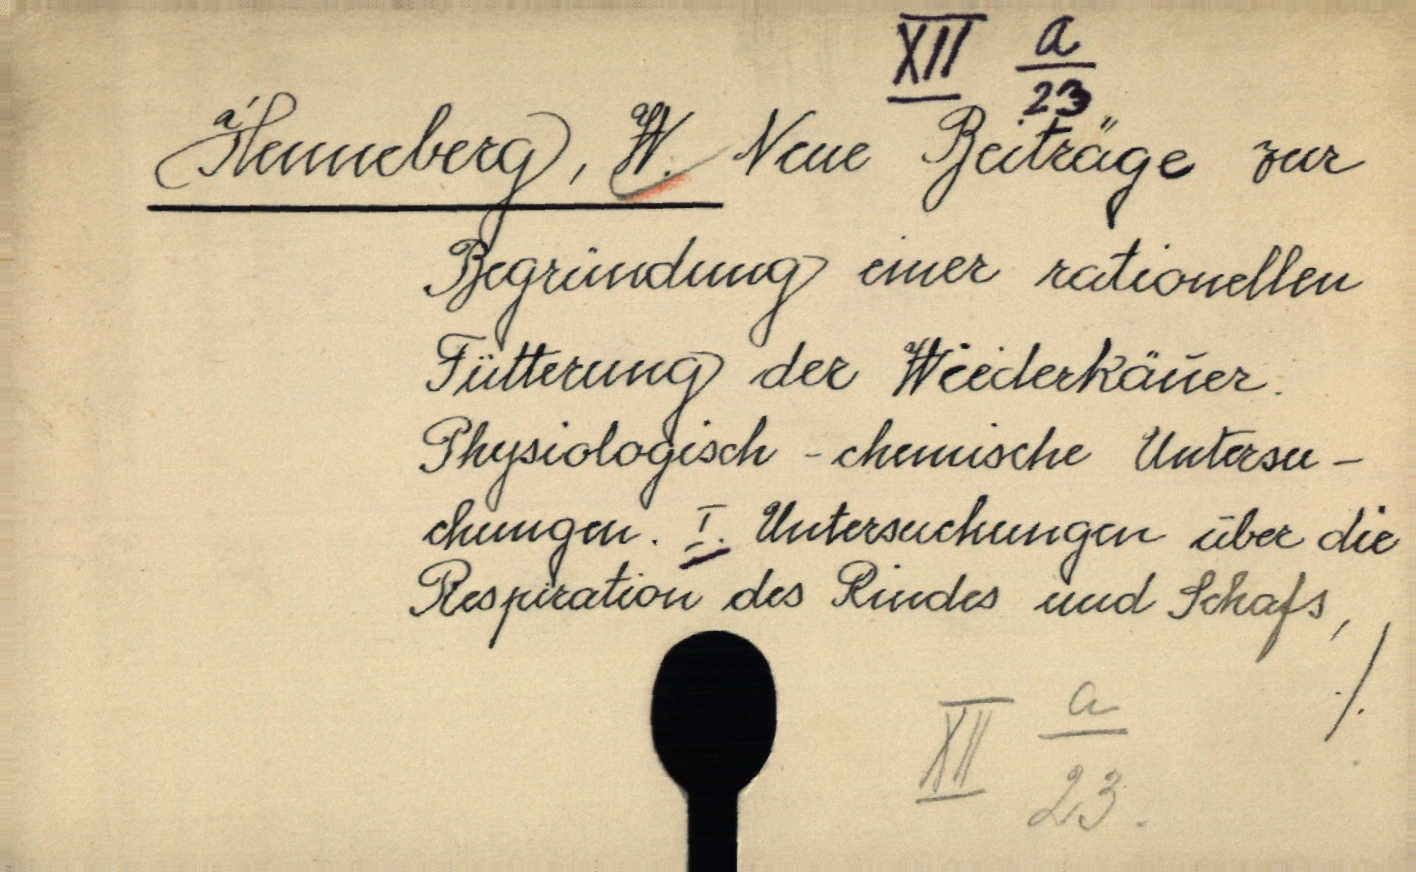 XII a/23
Henneberg, W. Neue Beiträge zur
Begründung einer rationellen
Fütterung der Wiederkäuer.
Physiologisch-chemische Untersu-
chungen. I. Untersuchungen über die
Respiration des Rindes und Schafs,
./.
XII a/23.